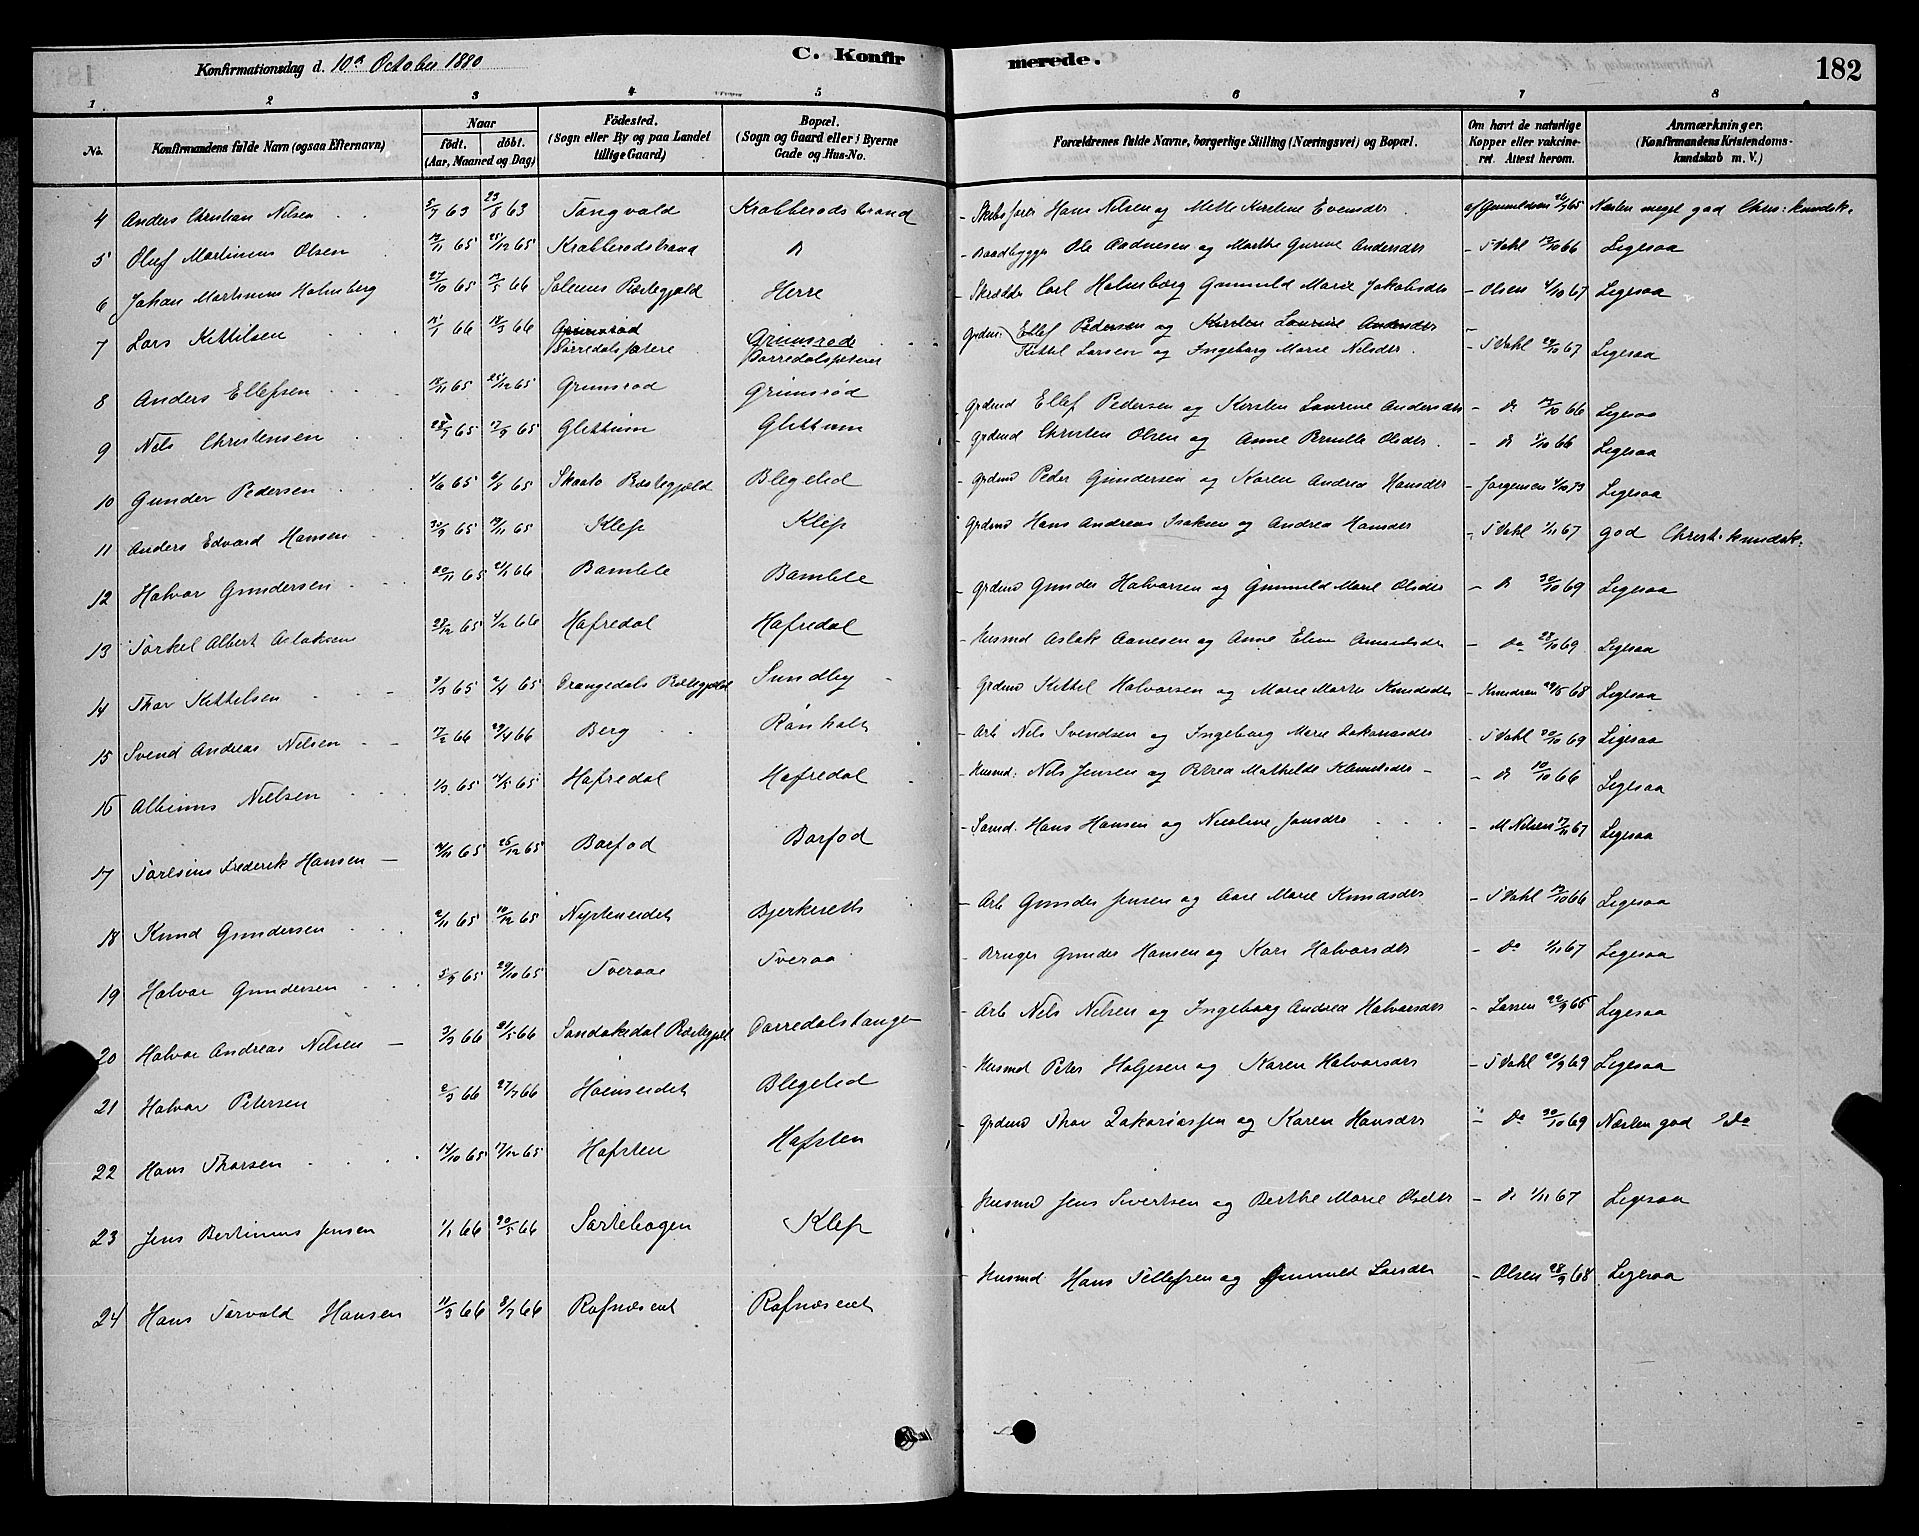 Konfirmationsdag d. 10de October 1880 C. Konfirmerede. 182
1 2 3 4 5 6 7 8
No. Konfirmandens fulde Navn (ogsaa Efternavn) Naar født. døbt. (Aar, Maaned og Dag) Födested. (Sogn eller By og paa Landet tillige Gaard) Bopæl. (Sogn og Gaard eller i Byerne Gade og Hus-No. Forældrenes fulde Navne, borgerlige Stilling (Næringsvei) og Bopæl. Om havt de naturlige Kopper eller vakcineret. Attest herom. Anmærkninger. (Konfirmandens Kristendomskundskab m. V.)
4 Anders Christian Nilsen 63 23/8 63 Tangvald Krabberødstrand Skibsfører Hans Nilsen og Mette Kirstine Evensdr af Gunuldsen 65 Næsten meget god Chris: kundsk.
5 Oluf Martinius Olsen 65 25/12 65 Krabberødstrand Do Baadbygger Ole Andersdr S Dahl 66 Ligesaa
6 Johan Martinius Holmberg 27/10 65 66 Solums Præstegjeld Herre Skrædder Carl Holmberg Gunuld Marie Jakobsdr Olsen 4/10 67 Ligesaa
7 Lars Kittilsen 66 66 Grimsrød Grimsrød Grdmd: Ellef Pedersen og Kirsten Laurine Andersdr
Kittel Larsen og Ingeborg Marie Nilsdr. S Dahl 67 Ligesaa
8 Anders Ellefsen 65 25/12 65 Grimsrød Grimsrød Grdmd Ellef Pedersen og Kirsten Laurine Andersdr Do 66 Ligesaa
9 Nils Christensen 65 17/9 65 Glittum Glittum Grdmd Christen Olsen og Anne Pernille Olsdr. Do 66 Ligesaa
10 Gunder Pedersen 4/6 65 65 Skaatø Præstegjeld Blegelid Grdmd Peder Gundersen og Karen Andrea Hansdr Jørgensen 73 Ligesaa
11 Anders Edvard Hansen 30/9 65 19/11 65 Klep Klep Grdmd Hans Andreas Isaksen og Andrea Hansdr S Dahl 1/11 67 god Christ: kundsk:
12 Halvor Gundersen 20/11 65 66 Bamble Bamble Grdmd Gunder Halvorsen og Gunuld Marie Olsdr Do 30/10 69 Ligesaa
13 Torkel Albert Aslaksen 28/12 65 4/2 66 Hafredal Hafredal Husmd Aslak Aanesen og Anne Eline Do 28/10 69 Ligesaa
14 Thor Kittelsen 9/3 65 2/4 65 Drangedals Præstegjeld Sundby Grdmd Kittel Halvorsen og Marie Knudsdr Knudsen 29/5 68 Ligesaa
15 Svend Andreas Nilsen 17/2 66 29/4 66 Berg Rønholt Arb Nils Svendsen og Ingeborg Marie Zakariasdr S Dahl 20/10 69 Ligesaa
16 Albinus Nielsen 1/3 65 65 Hafredal Hafredal Husmd: Nils Jensen og Petrea Mathilde Do 10/10 66 Ligesaa
17 Frederik Hansen 65 26/12 65 Barfod Barfod Sømd. Hans Hansen og Nicoline Jansdr M Nilsen 67 Ligesaa
18 Knud Gundersen 2/11 65 10/12 65 Nysteneidet Bjerkeseth Arb Gunder Jensen og Marie Knudsdr S Dahl 66 Ligesaa
19 Halvor Gundersen 5/9 65 29/10 65 Tveraae Tveraa Bruger Gunder Hansen og Kari Halvorsdr Do 1/11 67 Ligesaa
20 Halvor Andreas Nilsen 3/3 66 21/5 66 Sandøkedal Præstegjeld Dørredalstangen Arb Nils Nilsen og Ingeborg Andrea Halvorsdr Larsen 22/9 66 Ligesaa
21 Halvor Petersen 2/3 66 27/7 66 Høineidet Blegelid Husmd Peter Holgesen og Karen Halvorsdr S Dahl 20/9 69 Ligesaa
22 Hans Thorsen 14/10 65 17/12 65 Hafsten Hafsten Grdmd Thor Zakariassen og Karen Hansdr Do 30/10 69 Næsten god Do
23 Jens Bertinius Jensen 1/1 66 20/5 66 Klep Husmd Jens Sivertsen og Berthe Marie Olsdr Do 1/11 67 Ligesaa
24 Hans Torvald Hansen 11/3 66 8/7 66 Rafnæseiet Rafnæseiet Husmd Hans Tellefsen og Gunuld Larsdr Olsen 28/9 68 Ligesaa